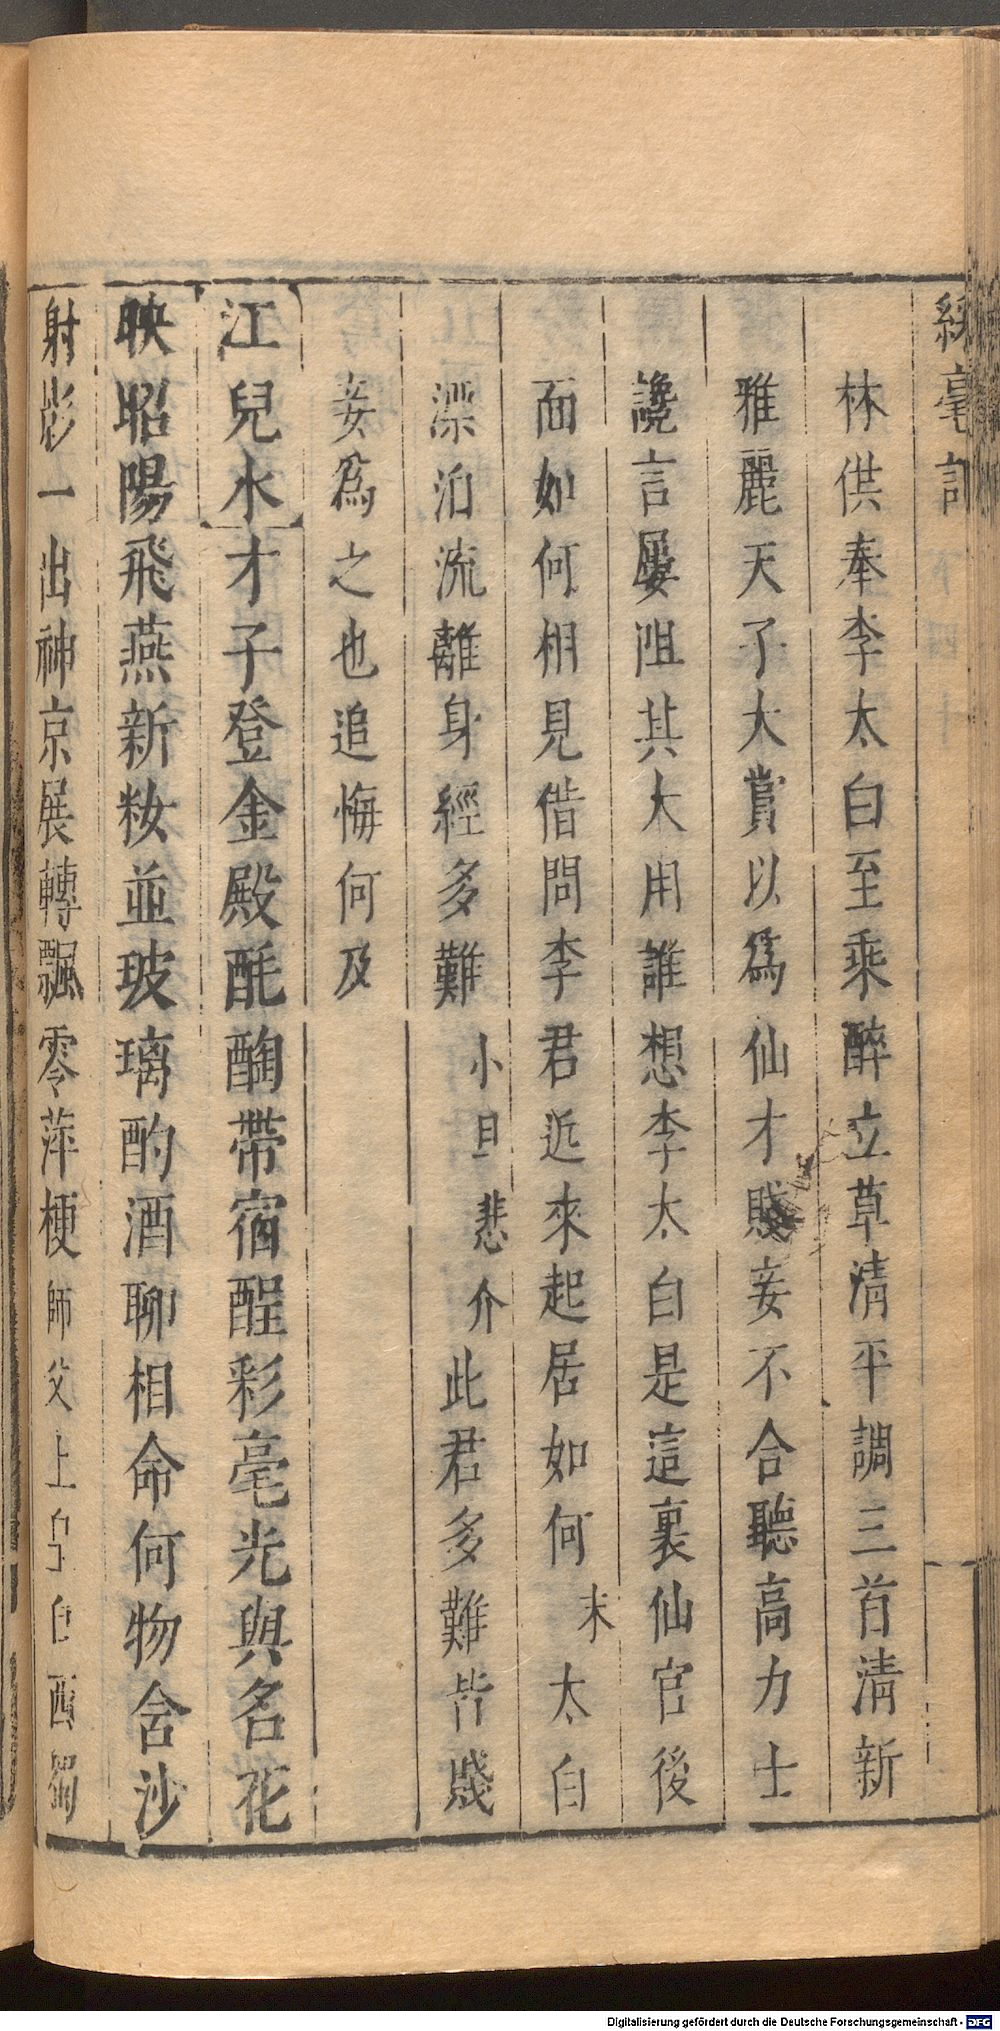 綵毫記
林供奉李太白至乘醉立草清平調三首清新
雅麗天子大嘗以爲仙才賤妾不合聽高力士
讒言屢阻其大用誰想李太白是這裏仙官後
面如何相見借問李君近來起居如何末太白
漂泊流離身經多難小旦悲介此君多難皆賤
妾爲之也追悔何及
江兒水才子登金殿酕醄帶宿酲彩毫光與名花
映昭陽飛燕新妝並玻璃酌酒聊相命何物含沙
射影一出神京展轉飄零萍梗師父上白西蜀
Digitalisierung gefördert durch die Deutsche Forschungsgemeinschaft - DFG